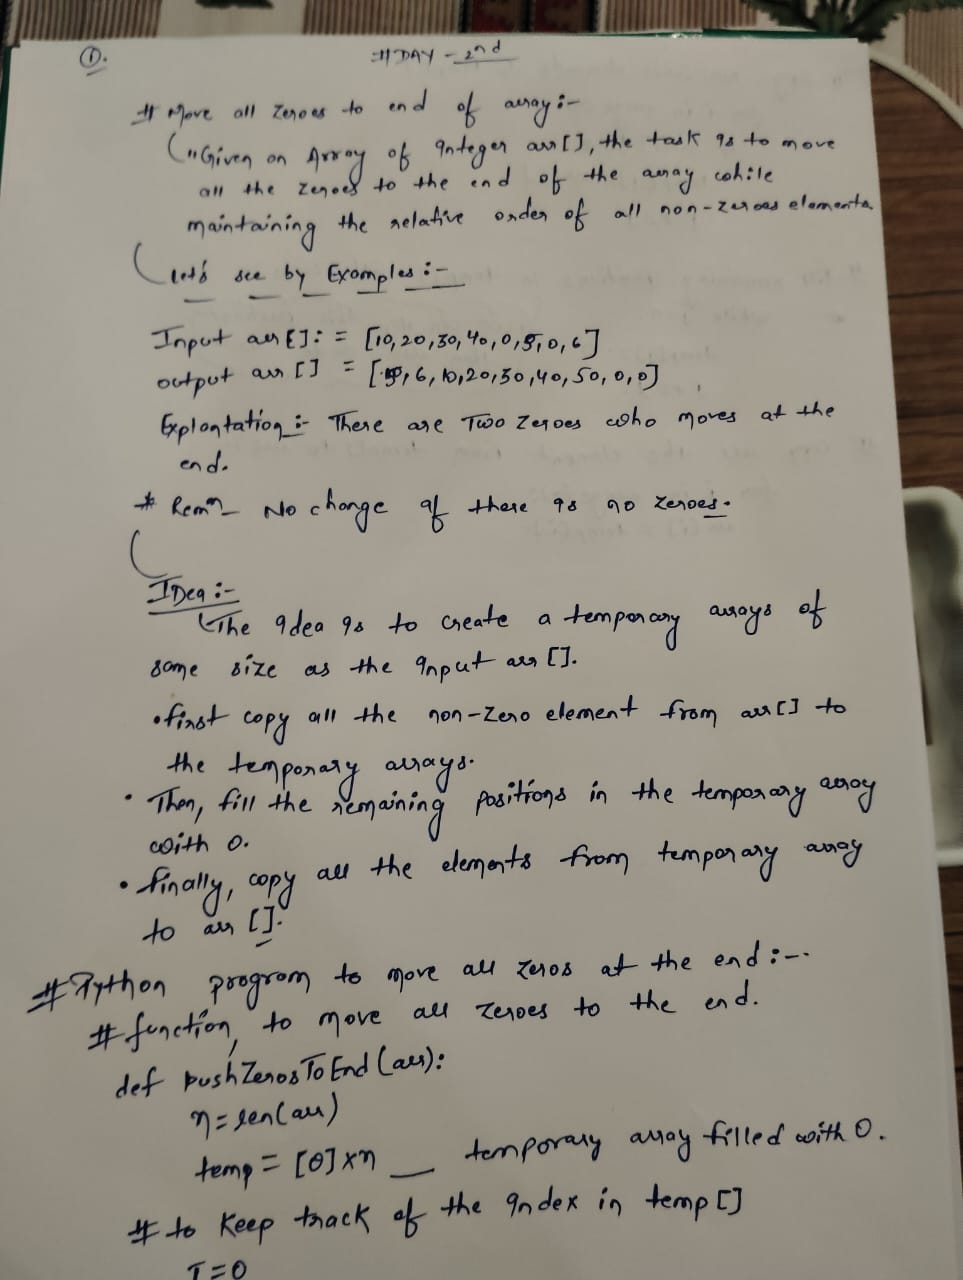 ①.
# DAY - 2nd
# Move all Zeroes to end of array :-
"Given an Array of Integer arr[], the task is to move
all the zeroes to the end of the array while
maintaining the relative order of all non-zeroes elements.
let's see by Examples :-
Input arr[]: = [10,20,30,40,0,5,0,6]
output arr [] = [6,10,20,30,40,50,0,0]
Explantation :- There are Two Zeroes who moves at the
end.
* No change if there is no zeroes.
IDea :-
The idea is to create a temporary arrays of
same size as the input arr [].
• first copy all the non-zero element from arr[] to
the temporary arrays.
• Then, fill the remaining positions in the temporary array
with 0.
• finally, copy all the elements from temporary array
to arr [].
# Python program to move all zeros at the end :-.
# function, to move all zeroes to the end.
def pushZerosToEnd(arr):
n = len(arr)
temp = [0]xn _ temporary array filled with 0.
# to keep track of the index in temp []
I=0